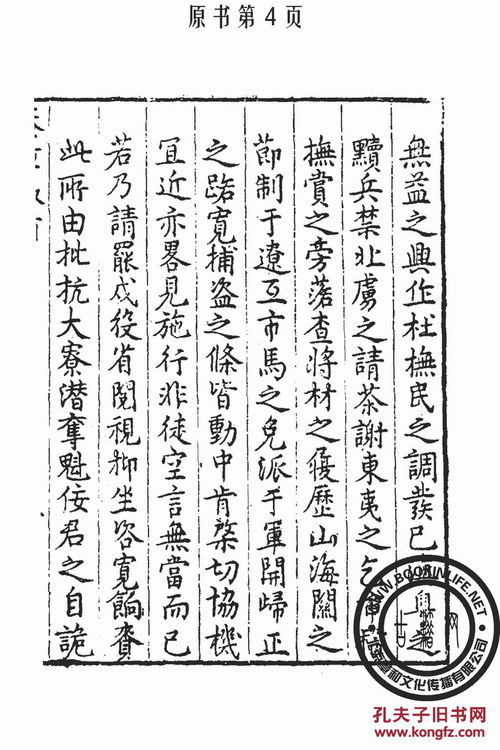 原书第4页
無益之興作杜撫民之調發已
黷兵禁北虜之請茶謝東夷之乞
撫賞之旁落查將材之履歷山海關之
節制于遼互市馬之免派于軍開歸正
之路寬捕盗之條皆動中肯綮切協機
宜近亦畧見施行非徒空言無當而已
若乃請罷戍役省閱視抑坐咨寬餉賚
此所由批抗大寮潜奪魁佞君之自詭
WWW.BOOKINLIFE.NET
和文化传播有限公司
孔夫子旧书网
www.kongfz.com